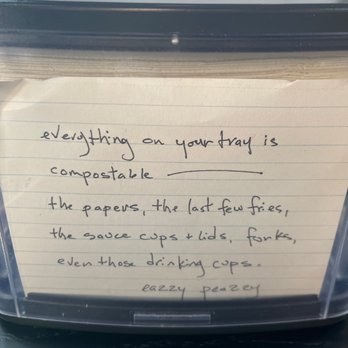 everything on your tray is
compostable —
the papers, the last few fries,
the sauce cups + lids, forks,
even those drinking cups.
eazzy peazzy